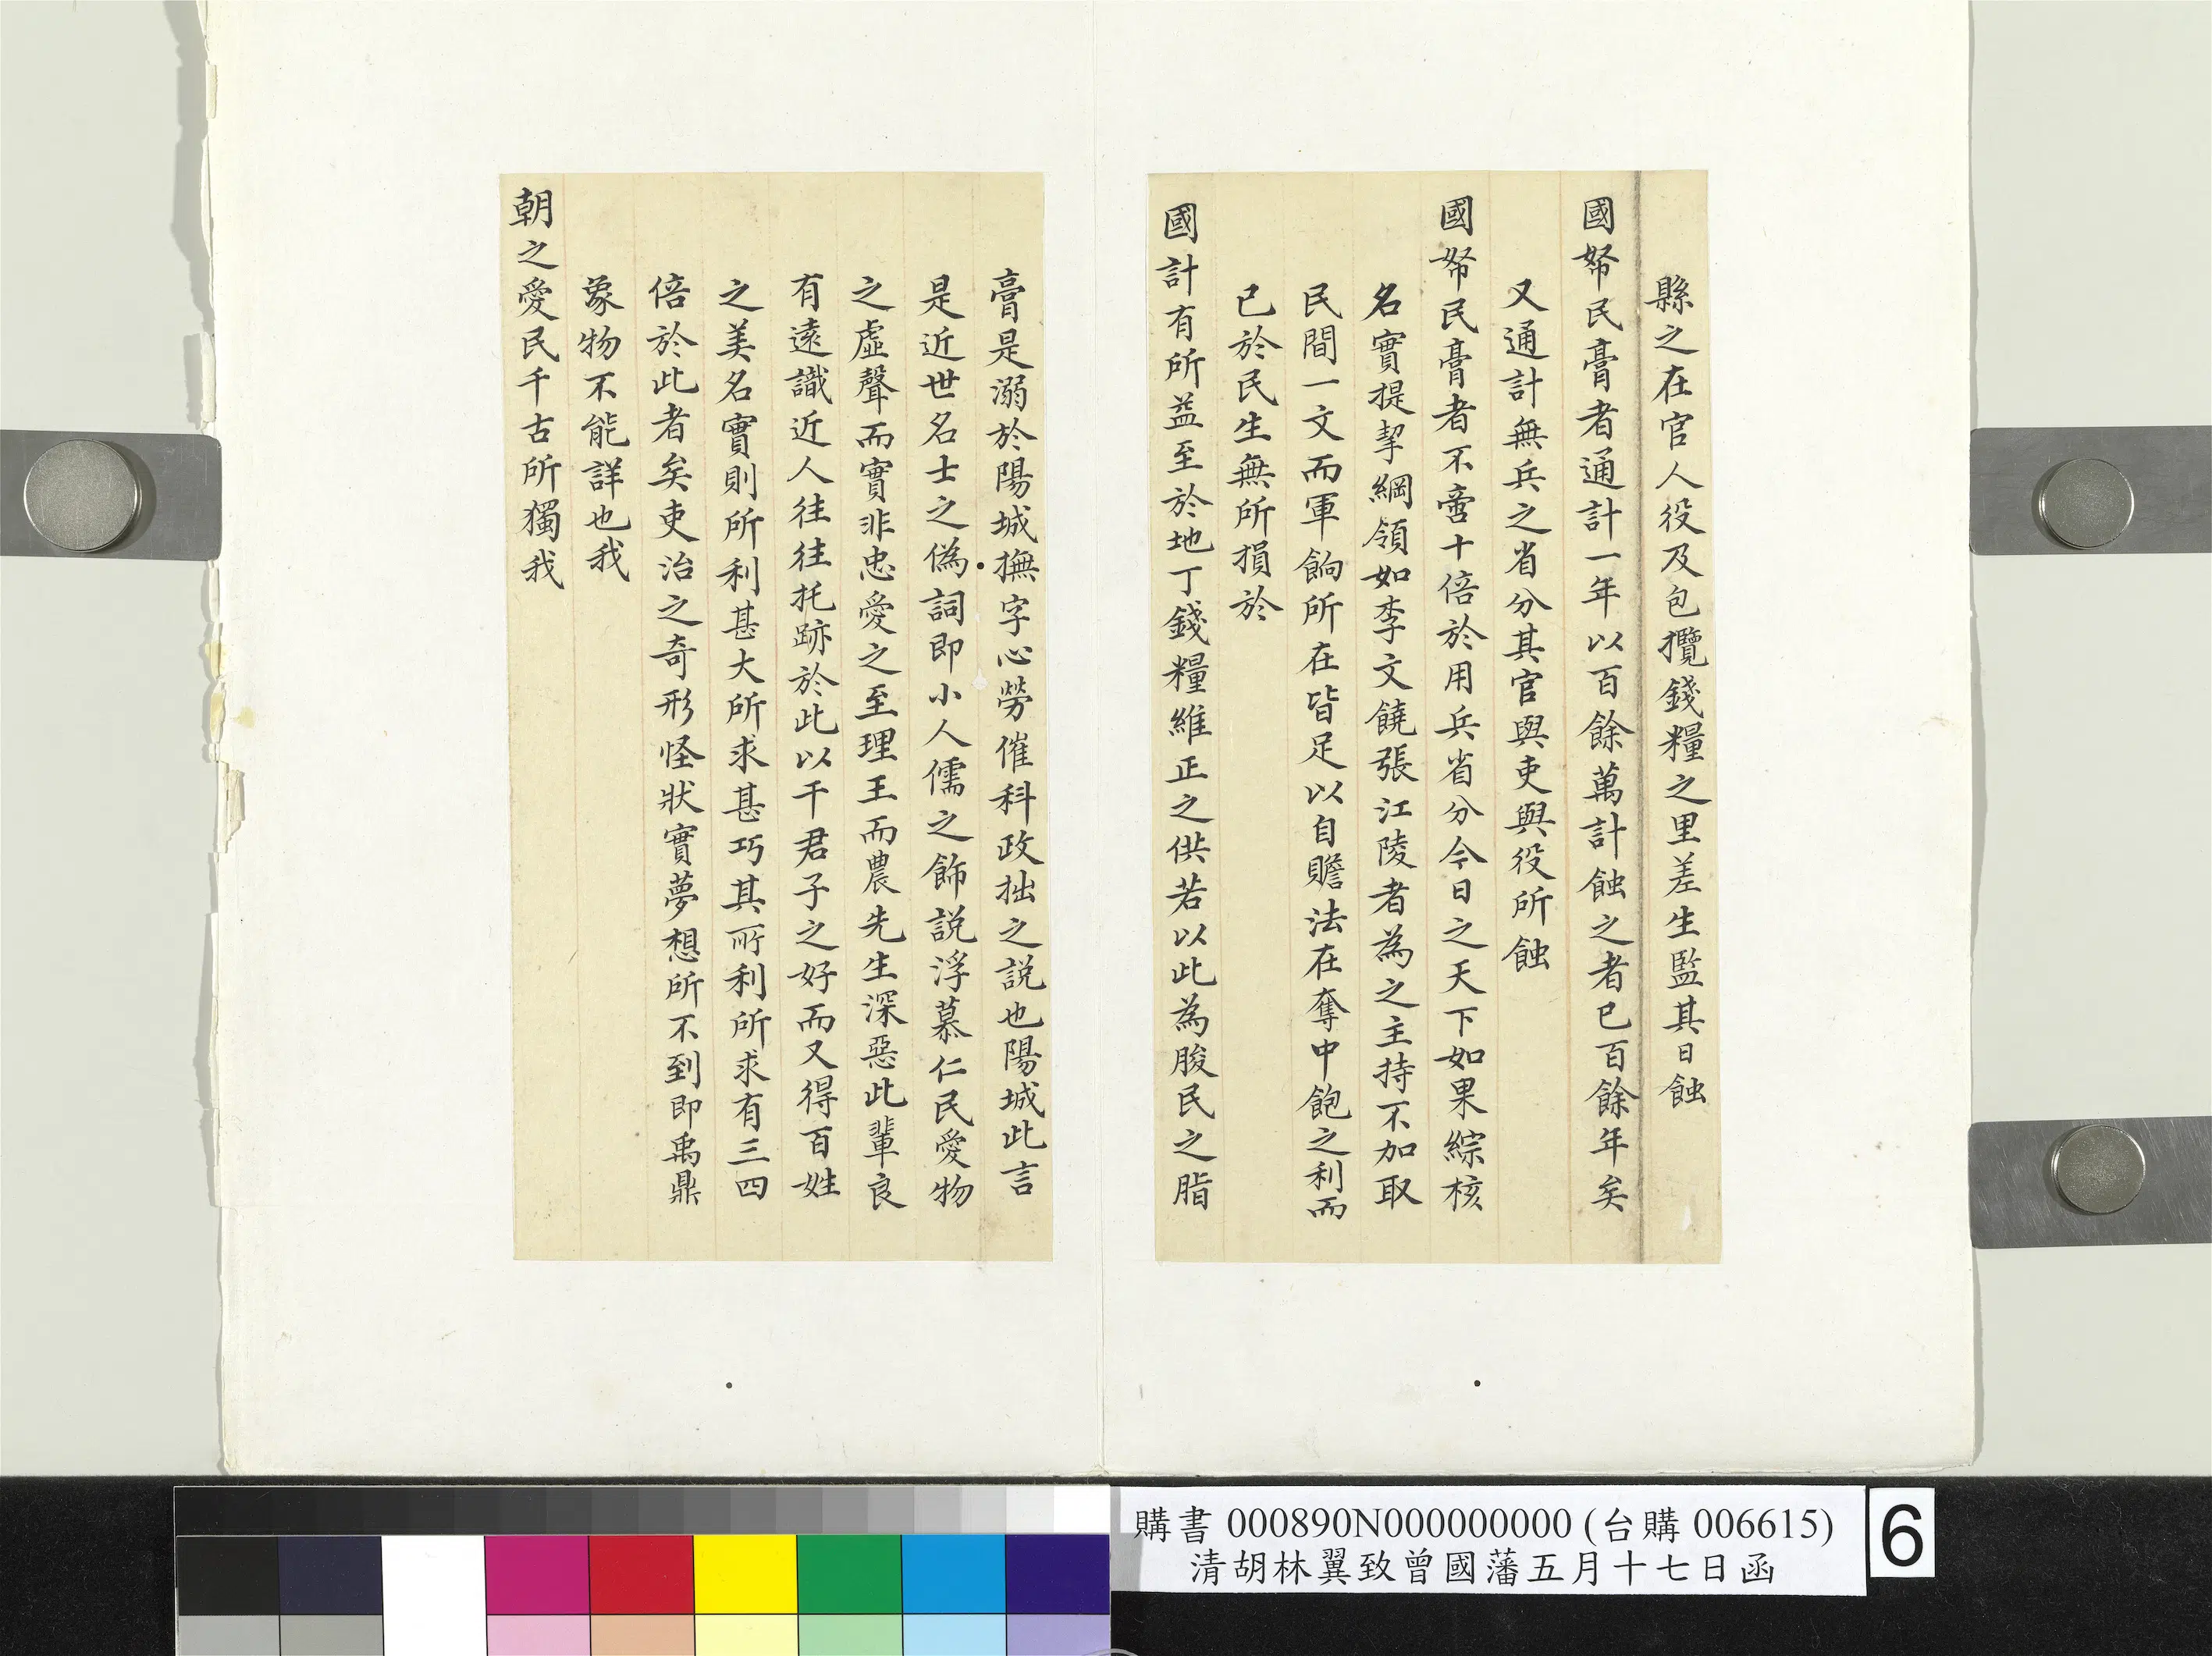 縣之在官人役及包攬錢糧之里差生監其日蝕
國帑民膏者通計一年以百餘萬計蝕之者已百餘年矣
又通計無兵之省分其官與吏與役所蝕
國帑民膏者不啻十倍於用兵省分今日之天下如果綜核
名實提挈綱領如李文饒張江陵者為之主持不加取
民間一文而軍餉所在皆足以自贍法在奪中飽之利而
已於民生無所損於
國計有所益至於地丁錢糧維正之供若以此為朘民之脂
膏是溺於陽城撫字心勞催科政拙之説也陽城此言
是近世名士之偽詞即小人儒之飾説浮慕仁民愛物
之虛聲而實非忠愛之至理王而農先生深惡此輩良
有遠識近人往往托跡於此以干君子之好而又得百姓
之美名實則所利甚大所求甚巧其所利所求有三四
倍於此者矣吏治之奇形怪狀實夢想所不到即禹鼎
象物不能詳也我
朝之愛民千古所獨我
購書 000890N000000000 (台購 006615)
清胡林翼致曾國藩五月十七日函
6